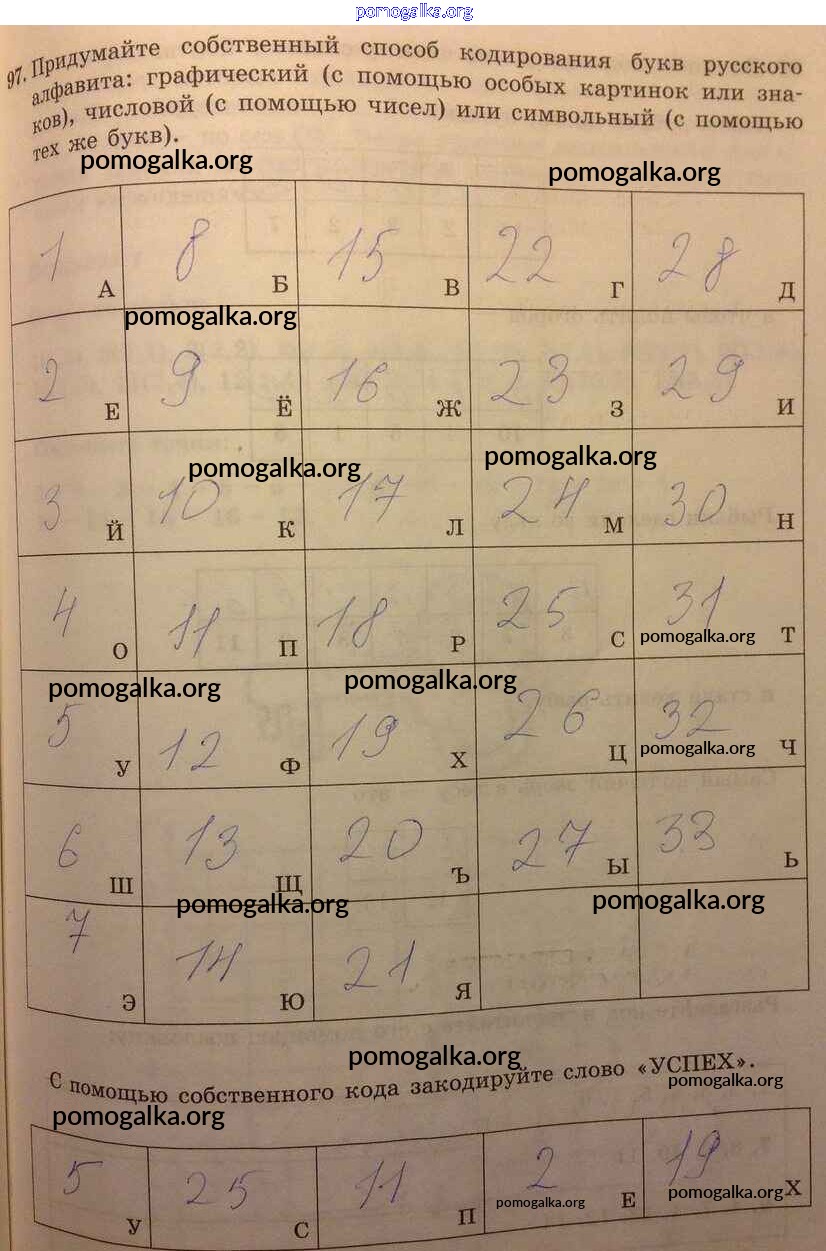 pomogalka.org
97. Придумайте собственный способ кодирования букв русского
алфавита: графический (с помощью особых картинок или зна-
ков), числовой (с помощью чисел) или символьный (с помощью
тех же букв).
pomogalka.org
pomogalka.org
1 А 8 Б 15 В 22 Г 28 Д
pomogalka.org
2 Е 9 Ё 16 Ж 23 З 29 И
pomogalka.org
pomogalka.org
3 Й 10 К 17 Л 24 М 30 Н
4 О 11 П 18 Р 25 С 31 Т
pomogalka.org
pomogalka.org
pomogalka.org
5 У 12 Ф 19 Х 26 Ц 32 Ч
pomogalka.org
6 Ш 13 Щ 20 Ъ 27 Ы 33 Ь
pomogalka.org
pomogalka.org
7 Э 14 Ю 21 Я
pomogalka.org
С помощью собственного кода закодируйте слово «УСПЕХ».
pomogalka.org
pomogalka.org
5 У 25 С 11 П 2 Е 19 Х
pomogalka.org
pomogalka.org